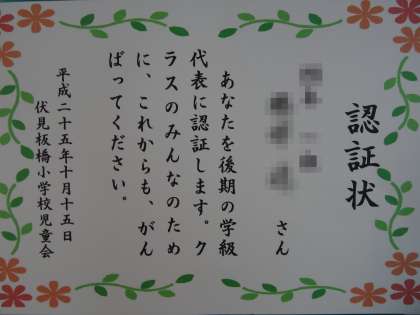 認証状
さん
あなたを後期の学級
代表に認証します。ク
ラスのみんなのため
に、これからも、がん
ばってください。
平成二十五年十月十五日
伏見板橋小学校児童会